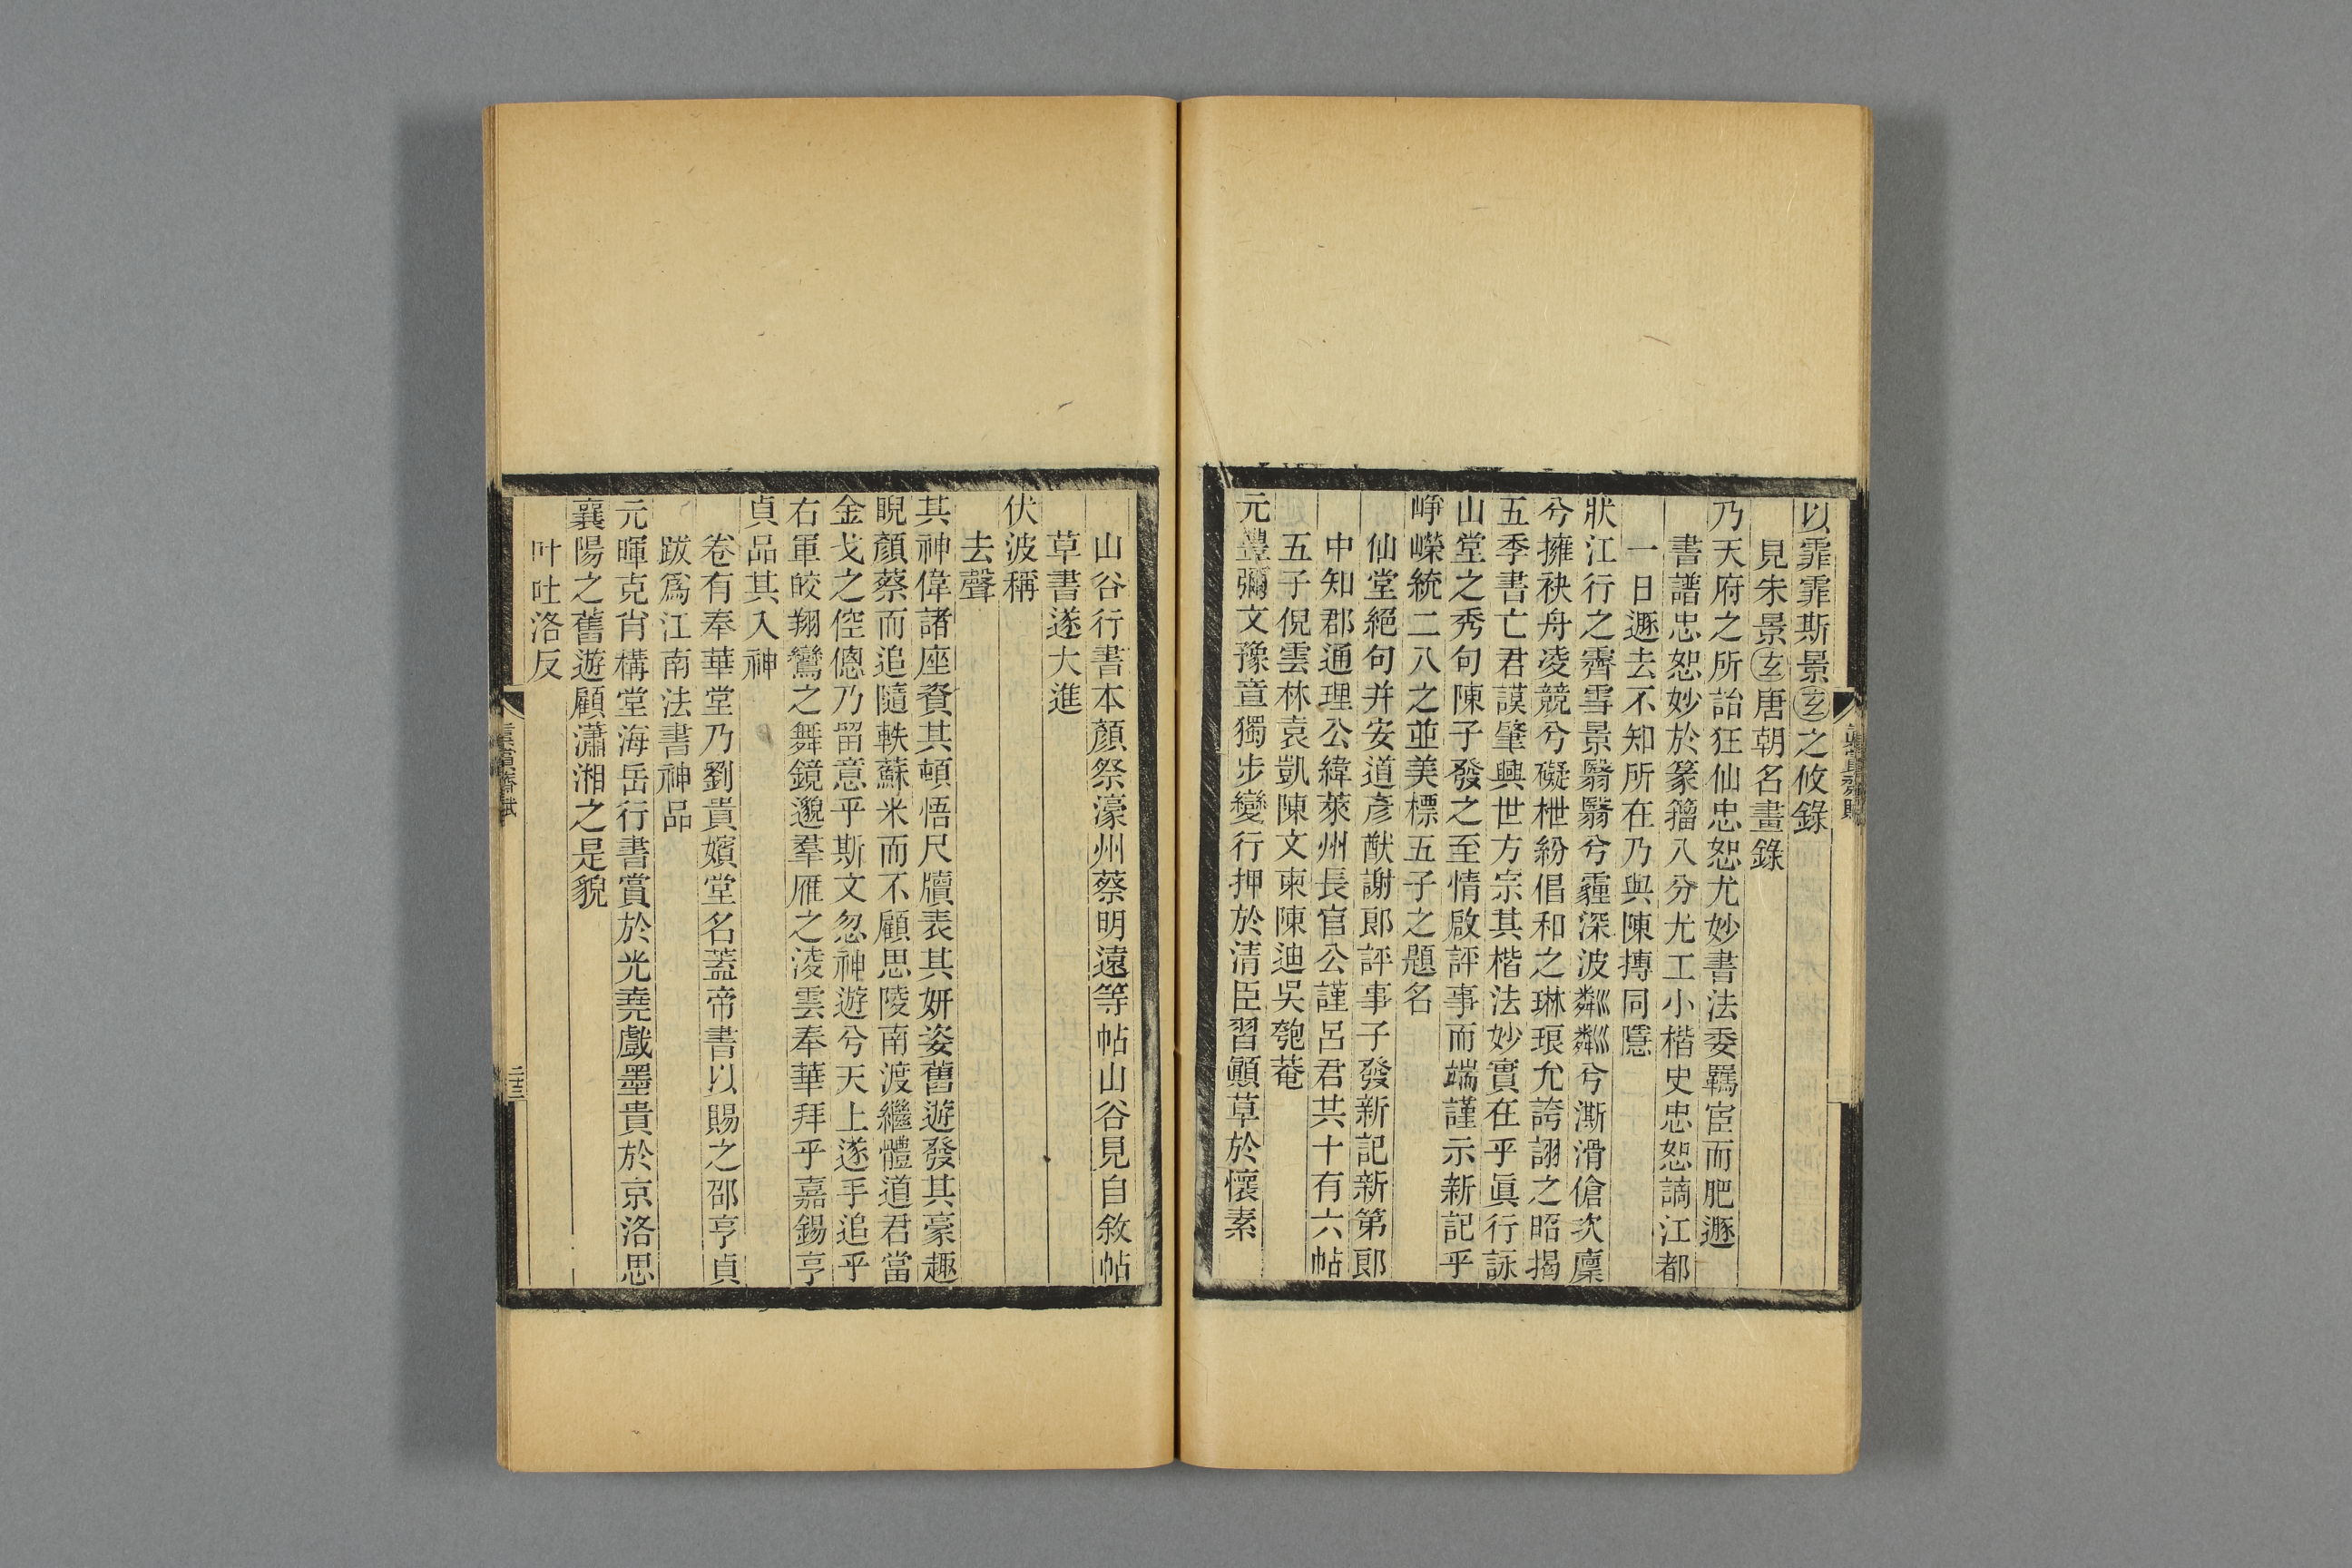 以霏霏斯景玄之攸錄
見朱景玄唐朝名畫錄
乃天府之所詒狂仙忠恕尤妙書法委羈宦而肥遯
書譜忠恕妙於篆籀八分尤工小楷史忠恕謫江都
一日遯去不知所在乃與陳摶同隱
狀江行之霽雪景翳翳兮霾深波粼粼兮澌滑傖次廩
兮擁袂舟凌競兮礙枻紛倡和之琳琅允誇詡之昭揭
五季書亡君謨肇興世方宗其楷法妙實在乎眞行詠
山堂之秀句陳子發之至情啟評事而端謹示新記乎
崢嶸統二八之並美標五子之題名
仙堂絕句并安道彥猷謝郎評事子發新記新第郎
中知郡通理公緯萊州長官公謹呂君共十有六帖
五子倪雲林袁凱陳文東陳迪吳匏菴
元豐彌文豫章獨步變行押於清臣習顚草於懷素
山谷行書本顏祭濠州蔡明遠等帖山谷見自敘帖
草書遂大進
伏波稱
去聲
其神偉諸座資其頓悟尺牘表其妍姿舊遊發其豪趣
睨顏蔡而追隨軼蘇米而不顧思陵南渡繼體道君當
金戈之倥傯乃留意乎斯文忽神遊兮天上遂手追乎
右軍皎翔鸞之舞鏡邈羣雁之淩雲奉華拜乎嘉錫亨
貞品其入神
卷有奉華堂乃劉貴嬪堂名蓋帝書以賜之邵亨貞
跋爲江南法書神品
元暉克肖構堂海岳行書賞於光堯戲墨貴於京洛思
襄陽之舊遊顧瀟湘之是貌
叶吐洛反
眞賞齋賦
二十三